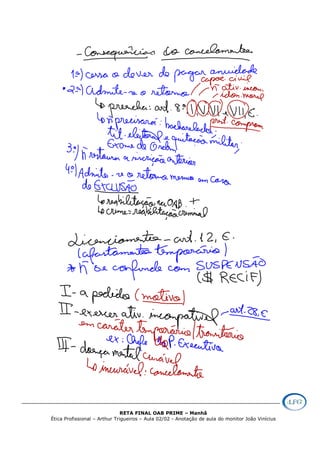 - Consequências do cancelamento
1º) cessa o dever de pagar anuidade
• 2º) Admite-se o retorno
capac. civil
ñ ativ. incom
idon. moral
↳ preencha: art. 8º I, V, VI, VII, E.
prest. compromi
↳ ñ precisará: bacharelado,
tit. eleitoral e quitação militar,
Exame de Ordem
3º) ñ restaura a inscrição anterior
4º) Admite-se o retorno mesmo em caso
de EXCLUSÃO
↳ reabilitação na OAB +
↳ crime = reabilitação criminal
Licenciamento - art. 12, E.
(afastamento temporário)
* ñ se confunde com SUSPENSÃO
($ RECIF)
I - a pedido (motivo)
II - exercer ativ. incompatível - art. 28, E
em caráter temporário/transitório
ex: Chefe do P. Executivo
III - doença mental curável
↳ incurável: cancelamento
RETA FINAL OAB PRIME – Manhã
Ética Profissional – Arthur Trigueiros – Aula 02/02 - Anotação de aula do monitor João Vinícius